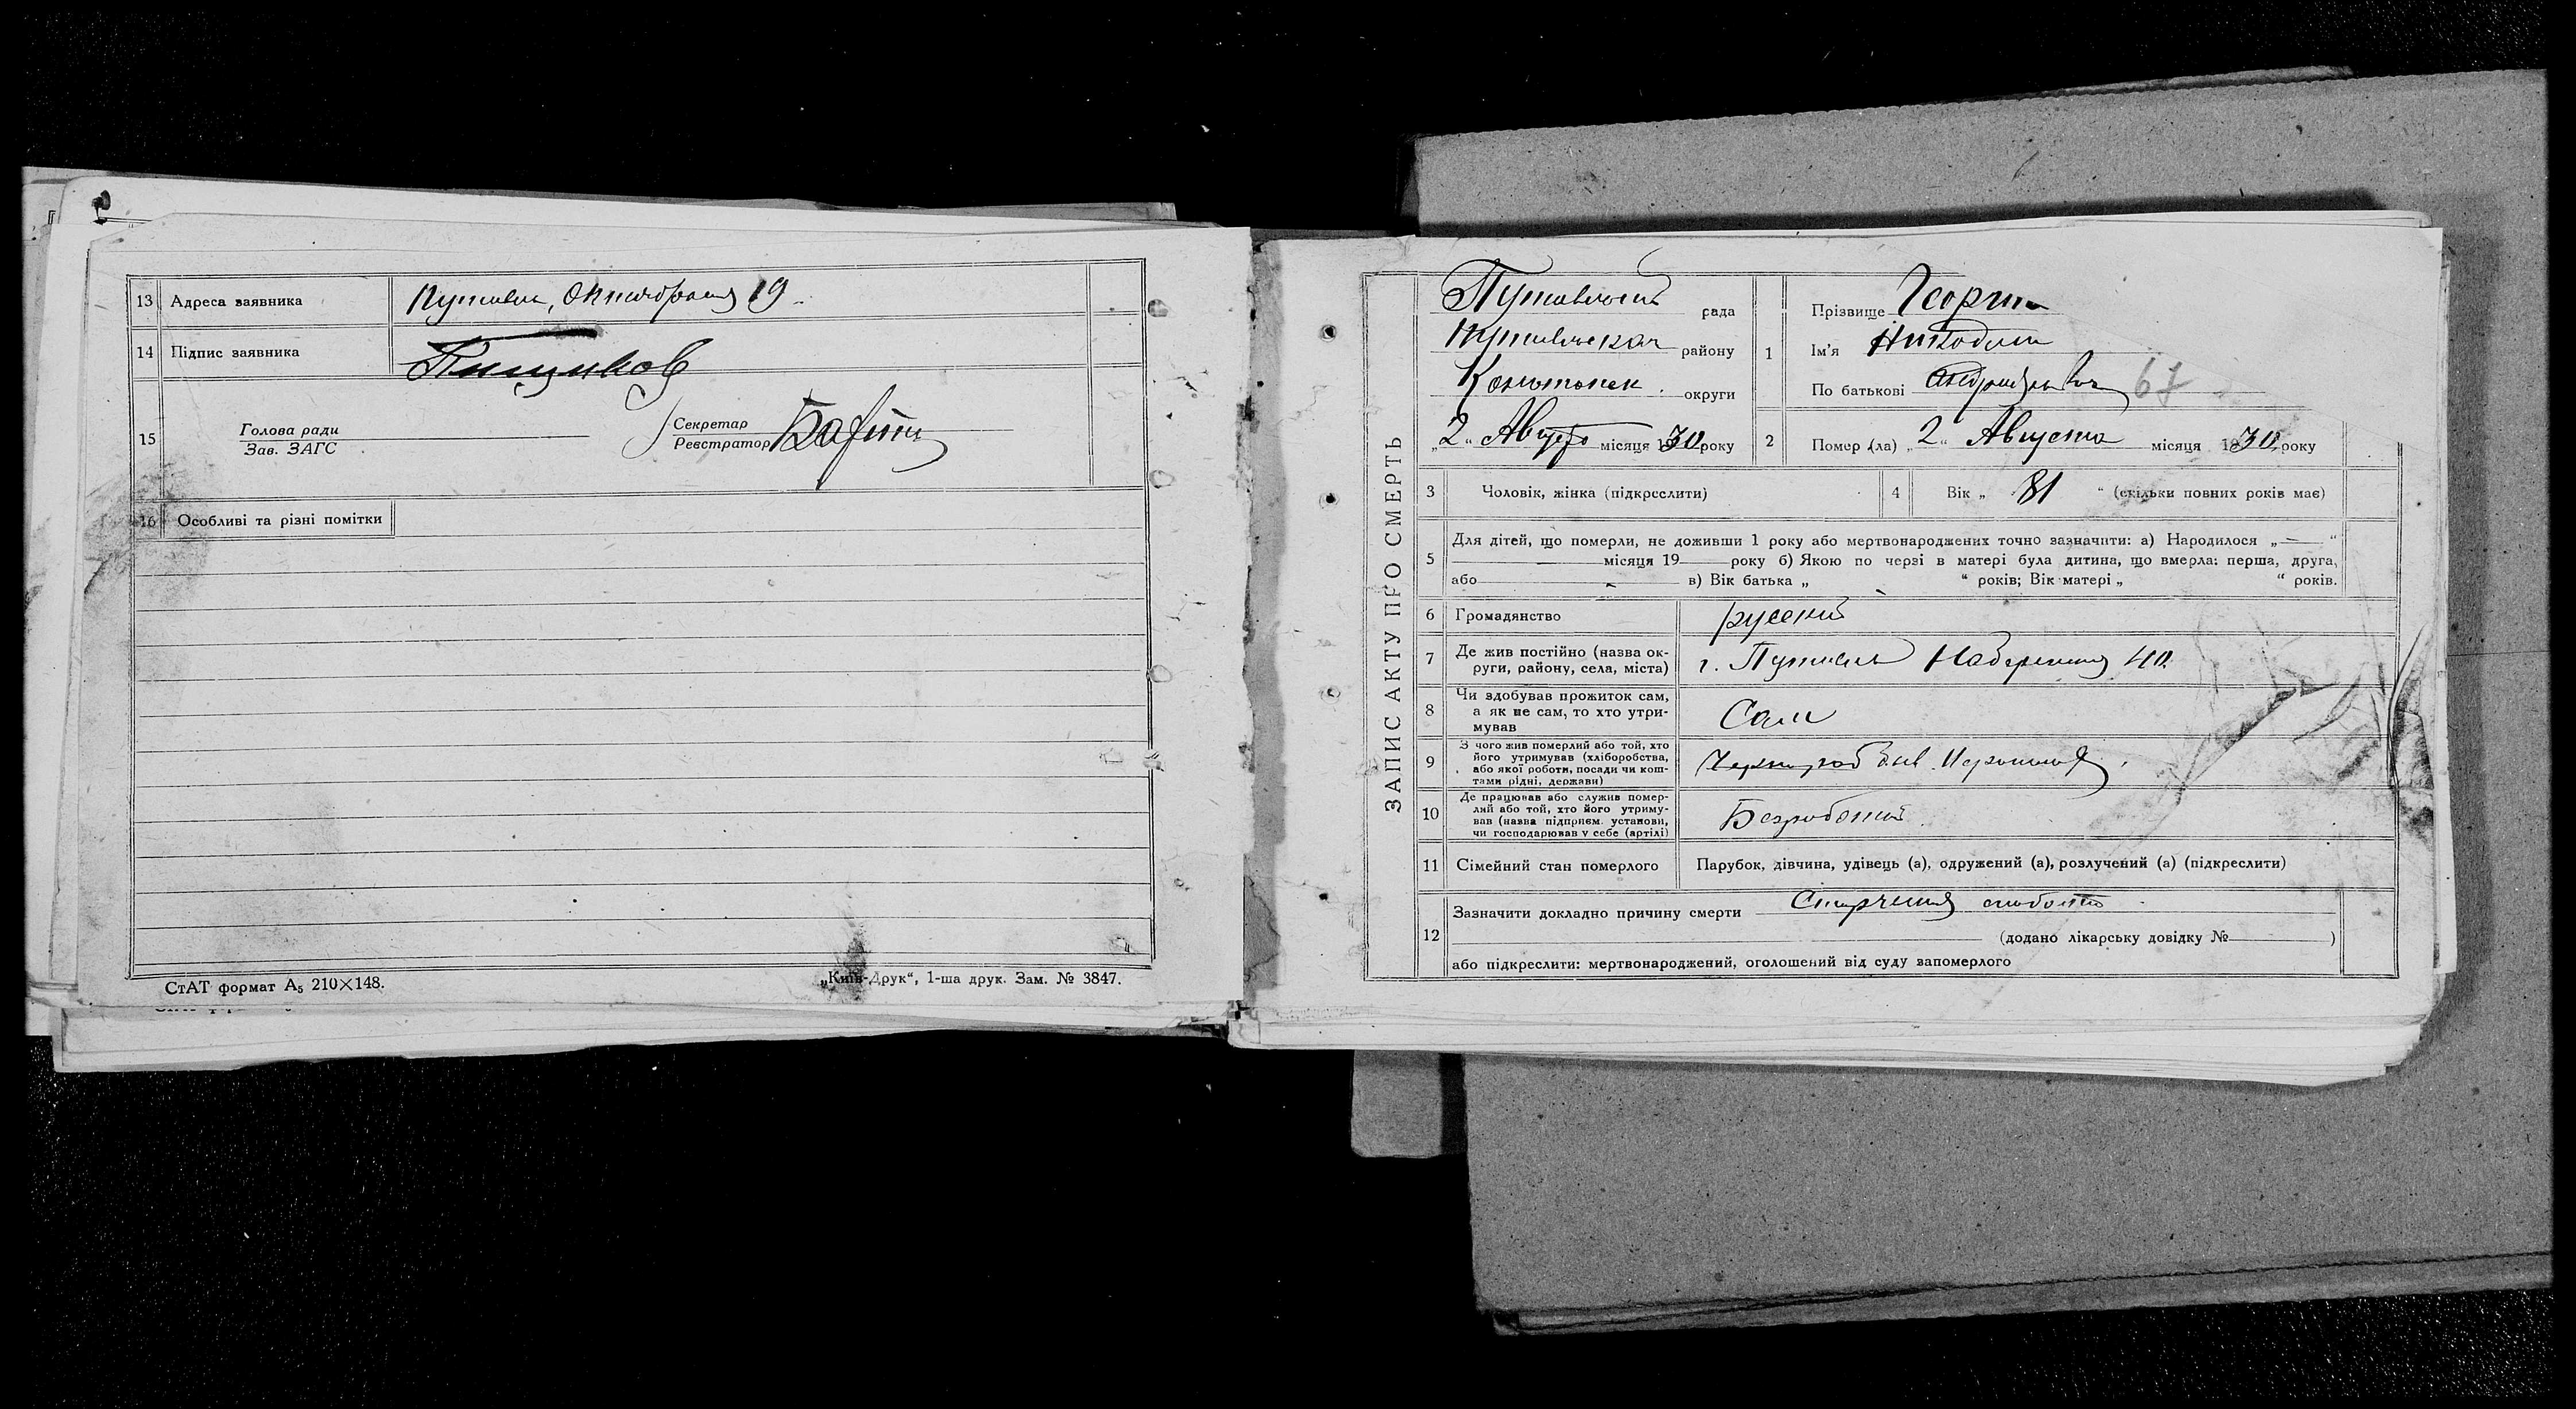 13 Адреса заявника Путивль, Октябрьская 19
14 Підпис заявника
15 Голова ради Секретар
Зав. ЗАГС Реєстратор
16 Особливі та різні помітки
СтАТ формат А5 210×148. „Київ-Друк“, 1-ша друк. Зам. № 3847.
ЗАПИС АКТУ ПРО СМЕРТЬ
рада
району
Конотопск. округи
„2“ Август місяця 1930 року
1 Прізвище
Ім'я Никодим
По батькові 67
2 Помер (ла) „2“ Августа місяця 1930 року
3 Чоловік, жінка (підкреслити)
4 Вік „81“ (скільки повних років має)
5 Для дітей, що померли, не доживши 1 року або мертвонароджених точно зазначити: а) Народилося „—“
місяця 19 року б) Якою по черзі в матері була дитина, що вмерла: перша, друга,
або в) Вік батька „ “ років; Вік матері „ “ років.
6 Громадянство русский
7 Де жив постійно (назва ок-
руги, району, села, міста) г. Путивль Набережная 40
8 Чи здобував прожиток сам,
а як не сам, то хто утри-
мував Сам
9 З чого жив померлий або той, хто
його утримував (хліборобства,
або якої роботи, посади чи кош-
тами рідні, держави)
10 Де працював або служив помер-
лий або той, хто його утриму-
вав (назва підприєм. установи,
чи господарював у себе (артілі) Безработный
11 Сімейний стан померлого Парубок, дівчина, удівець (а), одружений (а), розлучений (а) (підкреслити)
12 Зазначити докладно причину смерти Старческая слабость
(додано лікарську довідку № )
або підкреслити: мертвонароджений, оголошений від суду запомерлого